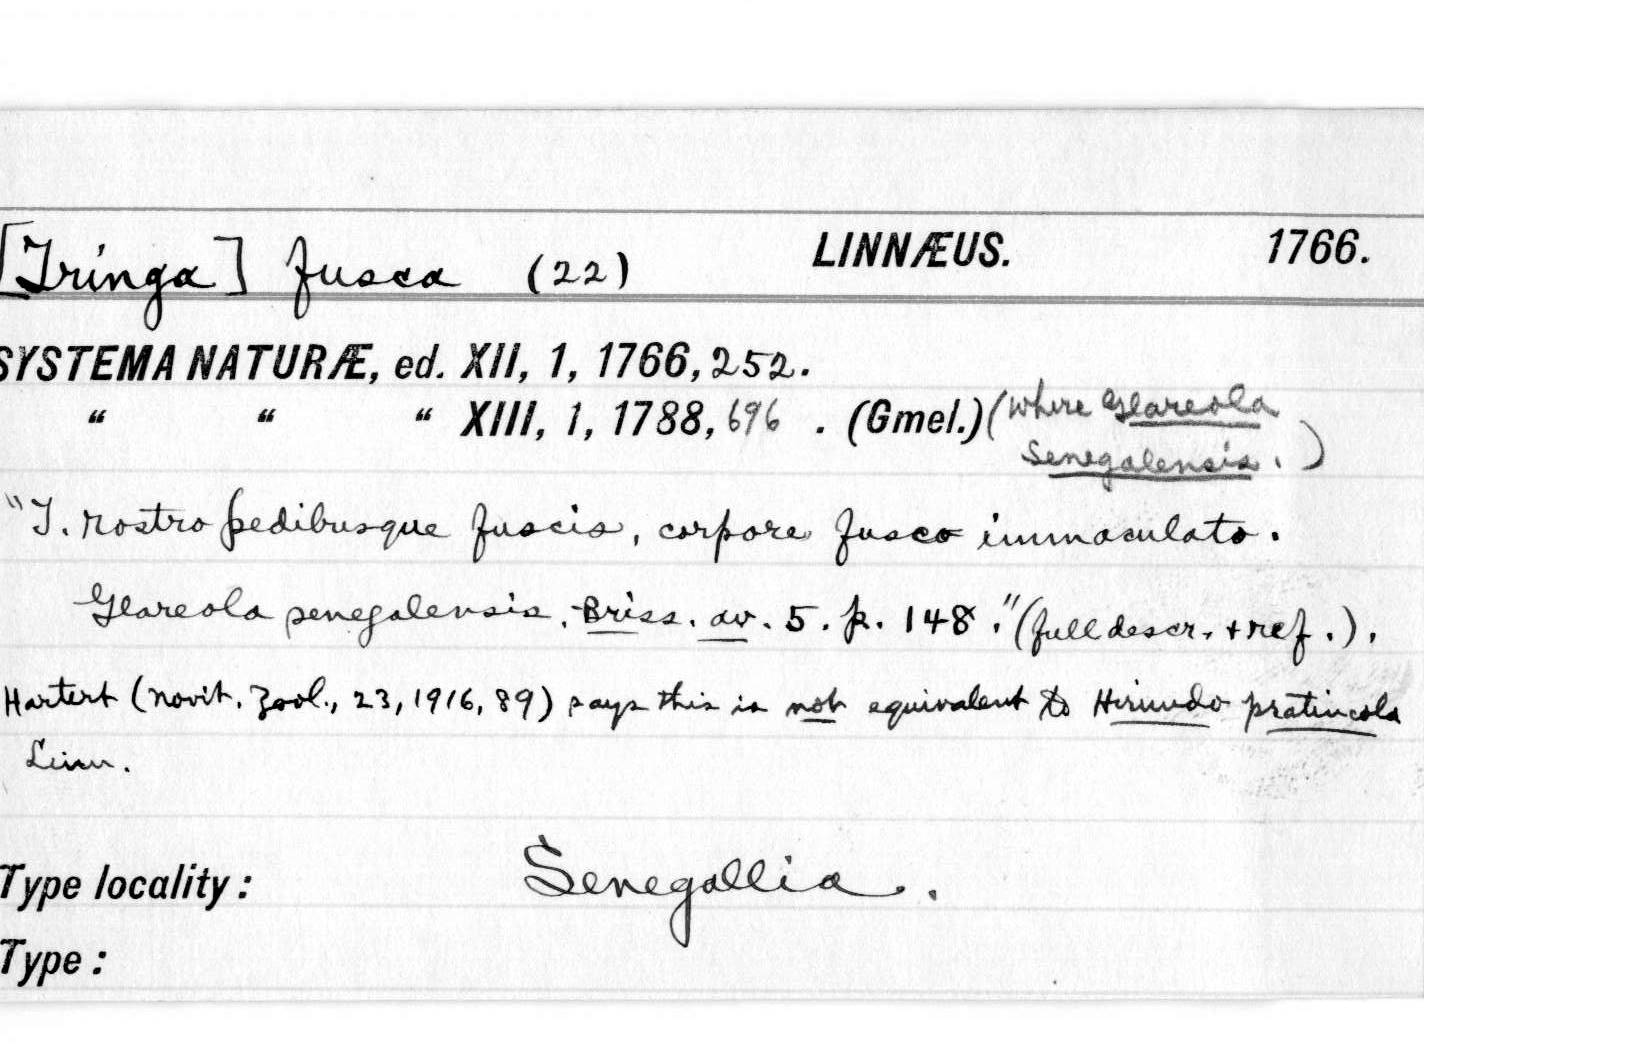 [Tringa] fusca (22) LINNÆUS. 1766.
SYSTEMA NATURÆ, ed. XII, 1, 1766, 252.
" " " XIII, 1, 1788, 696 . (Gmel.) (where Glareola
Senegalensis.)
"T. rostro pedibusque fuscis, corpore fusco immaculato.
Glareola senegalensis. Briss. av. 5. p. 148." (full descr. + ref.).
Hartert (Novit. Zool., 23, 1916, 89) says this is not equivalent to Hirundo pratincola
Linn.
Type locality: Senegallia.
Type: